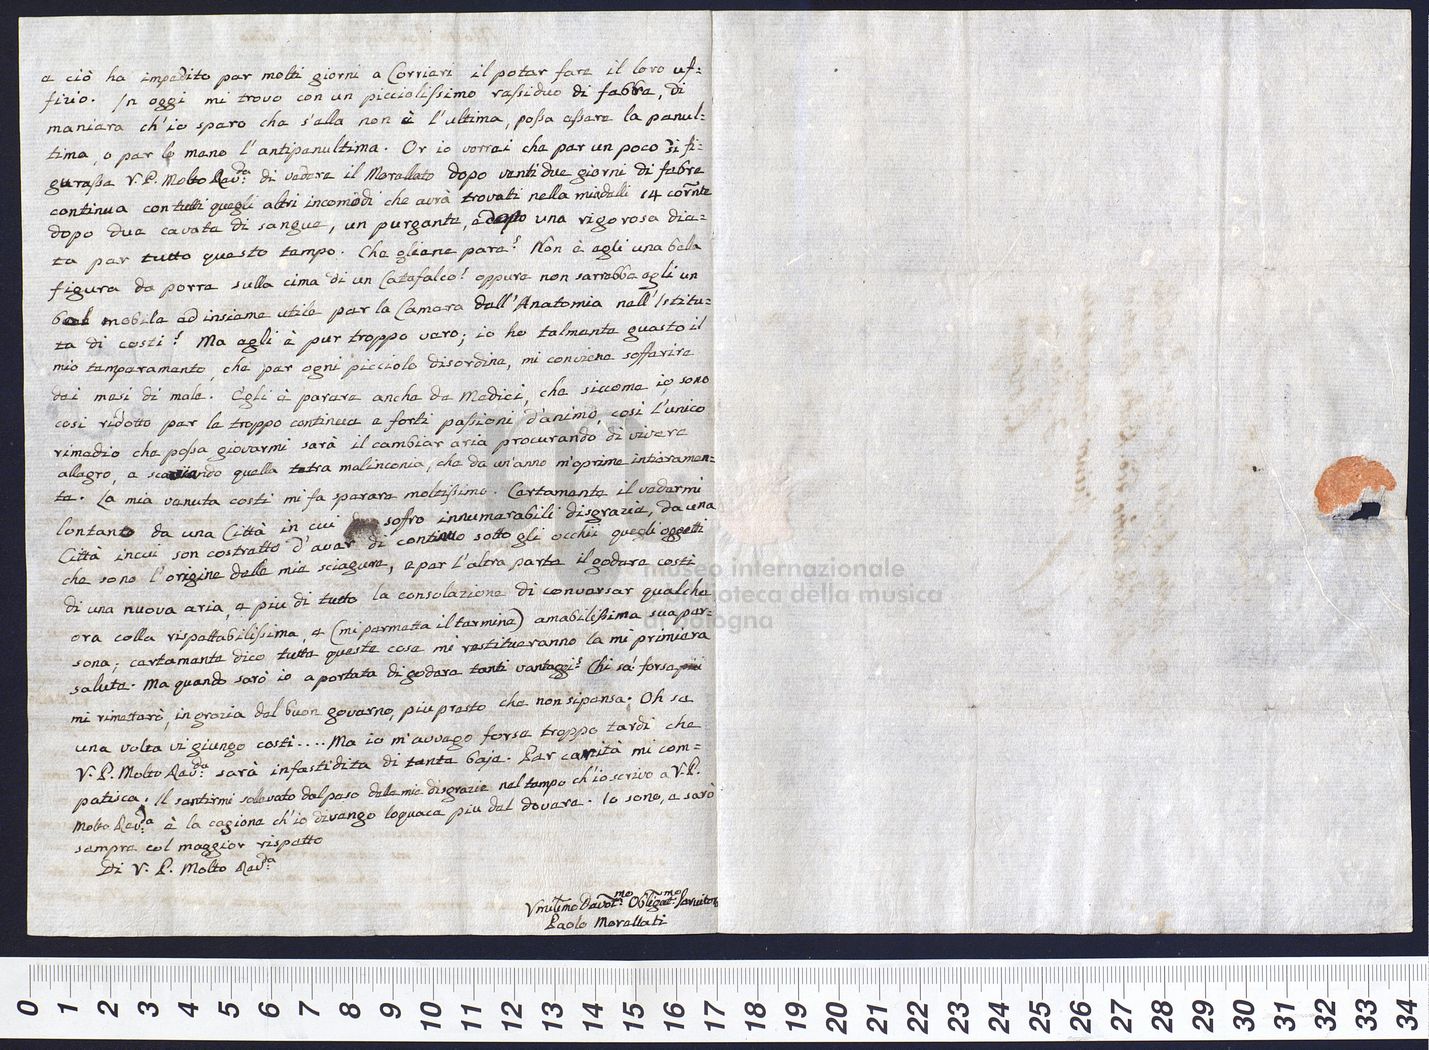 e ciò ha impedito per molti giorni a Corrieri il poter fare il loro uf=
fizio. In oggi mi trovo con un picciolissimo residuo di febbre, di
maniera ch'io spero che s'ella non è l'ultima, possa essere la penul=
tima, o per lo meno l'antipenultima. Or io vorrei che per un poco si fi=
gurasse V. P. Molto Revda: di vedere il Morellato dopo ventidue giorni di febre
continua con tutti quegli altri incomodi che avrà trovati nella mia delli 14 corrnte
dopo due cavate di sangue, un purgante, e dopo una rigorosa die=
ta per tutto questo tempo. Che gliene pare? Non è egli una bella
figura da porre sulla cima di un Catafalco? oppure non sarebbe egli un
bel mobile ed insieme utile per la Camera dell'Anatomia nell'Istitu=
to di costi? Ma egli è pur troppo vero; io ho talmente guasto il
mio temperamento, che per ogni picciolo disordine, mi conviene sofferire
dei mesi di male. Egli è parere anche de Medici, che siccome io sono
così ridotto per le troppo continue e forti passioni d'animo, così l'unico
rimedio che possa giovarmi sarà il cambiar aria procurando di vivere
allegro, e scacciando quella tetra malinconia, che da un'anno m'oprime intieramen=
te. La mia venuta costi mi fa sperare moltissimo. Certamente il vedermi
lontano da una Città in cui sofro innumerabili disgrazie, da una
Città in cui son costretto d'aver di continuo sotto gli occhii quegli oggetti
che sono l'origine delle mie sciagure, e per l'altra parte il godere costi
di una nuova aria, e piu di tutto la consolazione di conversar qualche
ora colla rispettabilissima, e (mi permetta il termine) amabilissima sua per=
sona; certamente dico tutte queste cose mi restitueranno la mi primiera
salute. Ma quando sarò io a portata di godere tanti vantaggi? Chi sà! forse più
mi rimetterò, in grazia del buon governo, piu presto che non si pensa. Oh se
una volta vi giungo costi.... Ma io m'avvego forse troppo tardi che
V. P. Molto Revda: sarà infastidita di tante baje. Per carità mi com=
patisca. Il sentirmi sollevato dal peso delle mie disgrazie nel tempo ch'io scrivo a V. P.
Molto Revda: è la cagione ch'io divengo loquace piu del dovere. Io sono, e sarò
sempre col maggior rispetto
Di V. P. Molto Revda:
Vmilimo Devotmo: Obligatmo: Servitore
Paolo Morellati
museo internazionale
e biblioteca della musica
di bologna
0 1 2 3 4 5 6 7 8 9 10 11 12 13 14 15 16 17 18 19 20 21 22 23 24 25 26 27 28 29 30 31 32 33 34